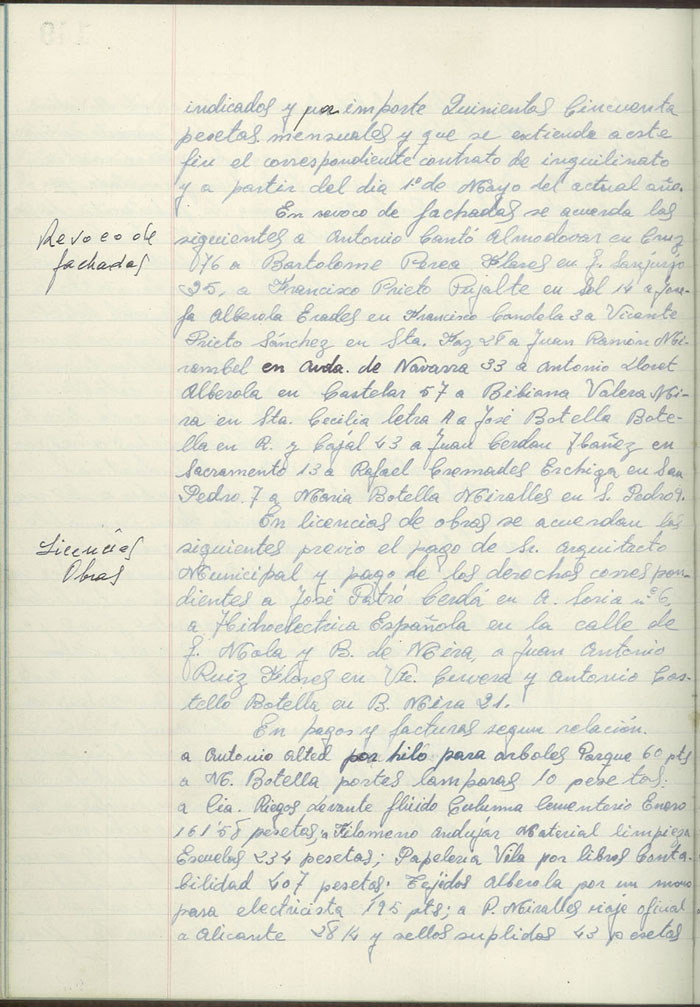 indicados y por importe Quinientas Cincuenta
pesetas mensuales y que se extienda a este
fin el correspondiente contrato de inquilinato
y a partir del dia 1º de Mayo del actual año.
Revoco de
fachadas
En revoco de fachadas se acuerda las
siguientes a Antonio Cantó Almodovar en Cruz
76 a Bartolome Perea Flores en G. Sanjurjo
25, a Francisco Prieto Pujalte en Sol 14 a Jose-
fa Alberola Erades en Francisco Candela 3 a Vicente
Prieto Sánchez en Sta. Faz 28 a Juan Ramón Mi-
rambel en Avda. de Navarra 33 a Antonio Lloret
Alberola en Castelar 57 a Bibiana Valera Mi-
ra en Sta. Cecilia letra A a José Botella Bote-
lla en R. y Cajal 43 a Juan Cerdan Ibañez en
Sacramento 13 a Rafael Cremades en San
Pedro. 7 a Maria Botella Miralles en S. Pedro 9.
Licencias
Obras
En licencias de obras se acuerdan las
siguientes previo el pago de Sr. Arquitecto
Municipal y pago de los derechos correspon-
dientes a José Cerdá en A. Soria nº 6,
a Hidroelectrica Española en la calle de
G. Mola y B. de Mira, a Juan Antonio
Ruiz Flores en Vte. Cervera y Antonio Cas-
tello Botella en B. Mira 21.
En pagos y facturas segun relación.
a Antonio Alted por hilo para arboles Parque 60 pts
a M. Botella portes lamparas 10 pesetas.
a Cia. Riegos Levante flúido Columna Cementerio Enero
161'58 pesetas, a Filomeno Andujár Material limpieza
Escuelas 234 pesetas; Papeleria Vila por libros Conta-
bilidad 407 pesetas. Tejidos Alberola por un mono
para electricista 195 pts; a P. Miralles viaje oficial
a Alicante 28'14 y sellos suplidos 43 pesetas